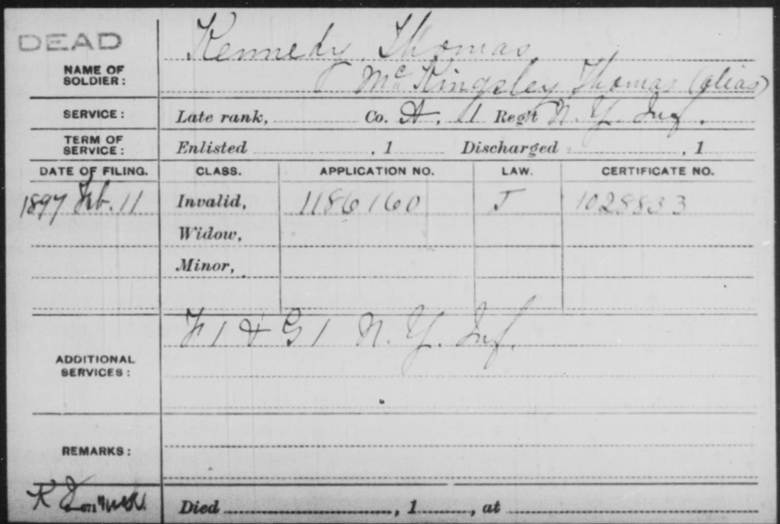 DEAD
NAME OF SOLDIER: Kennedy, Thomas
McKingsley, Thomas (alias)
SERVICE: Late rank, Co. A, 1 Reg't N.Y. Inf.
TERM OF SERVICE: Enlisted , 1 Discharged , 1
DATE OF FILING. CLASS. APPLICATION NO. LAW. CERTIFICATE NO.
1897 Feb. 11 Invalid, 1186160 J 1028833
Widow,
Minor,
ADDITIONAL SERVICES: F 1 & G 1 N.Y. Inf.
REMARKS:
Died , 1 , at